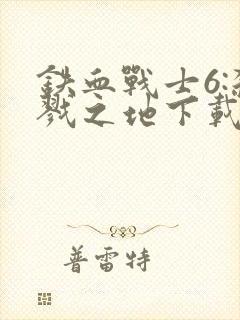 鉄血戰士6:殺
戮之地下載
普雷特